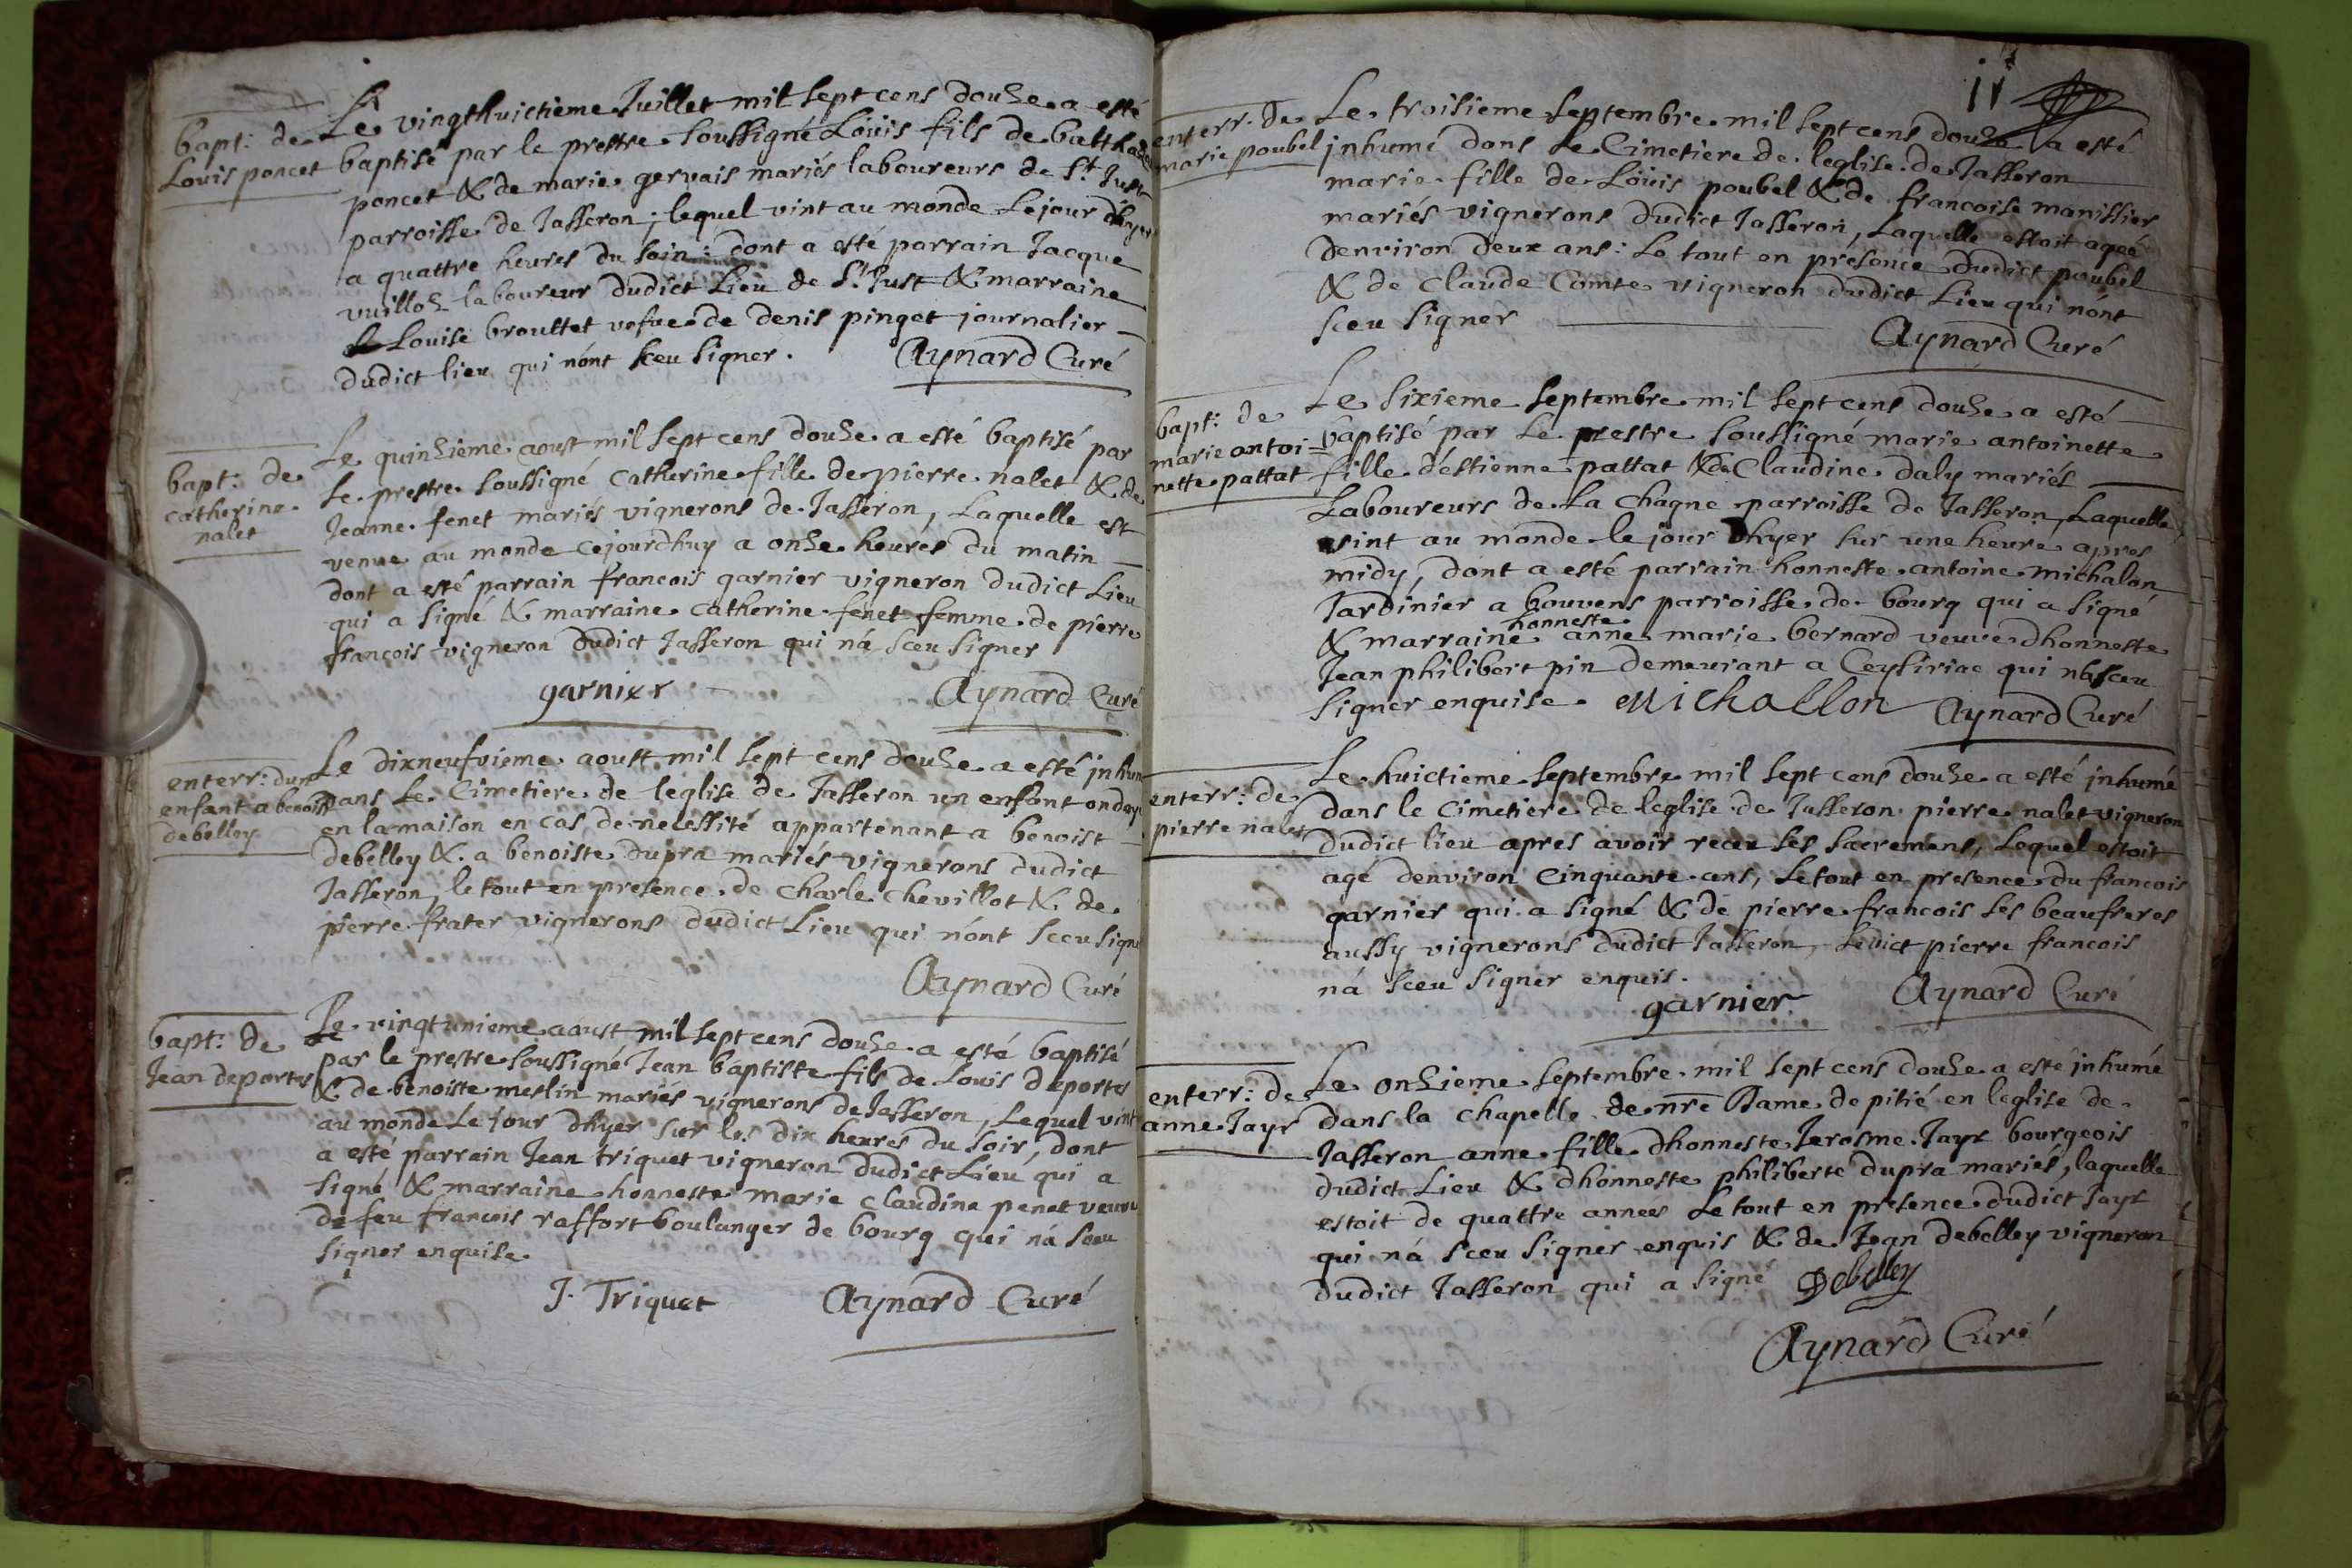 bapt: de
Louis poncet
Le vingthuictieme Juillet mil sept cens douze a esté
baptisé par le prestre soussigné Loüis fils de
poncet & de marie gervais mariés laboureurs de St. Just
parroisse de Jasseron; lequel vint au monde le jour dhyer
a quattre heures du soir: dont a esté parrain Jacque
vuilloz laboureur dudict Lieu de St. Just & marraine
Louise broultet vefve de denis pinget journalier
dudict lieu qui nónt sceu signer. Aynard Curé
bapt: de
catherine
nalet
Le quinzieme aoust mil sept cens douze a esté baptisé par
le prestre soussigné catherine fille de pierre nalet & de
Jeanne fenet mariés vignerons de Jasseron, Laquelle est
venue au monde cejourdhuy a onze heures du matin
dont a esté parrain francois garnier vigneron dudict Lieu
qui a signé & marraine catherine fenet femme de pierre
francois vigneron dudict Jasseron qui ná sceu signer
garnier Aynard Curé
enterr: dun
enfant a benoist
debelley
Le dixneufvieme aoust mil sept cens douze a esté jnhum
dans le Cimetiere de leglise de Jasseron un enfant ondoye
en la maison en cas de necessité appartenant a benoist
debelley & a benoiste dupra mariés vignerons dudict
Jasseron, le tout en presence de charle chevillot & de
pierre frater vignerons dudict Lieu qui nónt sceu signe
Aynard Curé
bapt: de
Jean deportes
Le vingtunieme aoust mil sept cens douze a esté baptisé
par le prestre soussigné Jean baptiste fils de Louis deportes
& de benoiste meslin mariés vignerons de Jasseron, Lequel vint
au monde le jour dhyer sur les dix heures du soir, dont
a esté parrain Jean triquet vigneron dudict Lieu qui a
signé & marraine honneste marie claudine penet veuve
de feu francois raffort boulanger de bourg qui ná sceu
signer enquise.
J. Triquet Aynard Curé
11
enterr. de
marie poubel
Le troisieme septembre mil sept cens douze a esté
jnhumé dans le Cimetiere de leglise de Jasseron
marie fille de Loüis poubel & de francoise manissier
mariés vignerons dudict Jasseron, Laquelle estoit ageé
denviron deux ans: Le tout en presence dudict poubel
& de claude Comte vigneron dudict Lieu qui nónt
sceu signer Aynard Curé
bapt: de
marie antoi=
nette pattat
Le sixieme septembre mil sept cens douze a esté
baptisé par le prestre soussigné marie antoinette
fille d'estienne pattat & de Claudine daly mariés
Laboureurs de La chagne parroisse de Jasseron, Laquelle
vint au monde le jour dhyer sur une heure apres
midy, dont a esté parrain honneste antoine michalon
Jardinier a bouvens parroisse de bourg qui a signé
honneste
& marraine anne marie bernard veuve dhonneste
Jean philibert pin demeurant a Ceysiriac qui ná sceu
signer enquise. Michallon Aynard Curé
enterr: de
pierre nalet
Le huictieme septembre mil sept cens douze a esté jnhumé
dans le Cimetiere de leglise de Jasseron pierre nalet vigneron
dudict lieu apres avoir receu ses sacremens, Lequel estoit
agé denviron Cinquante ans, Le tout en presence du francois
garnier qui a signé & de pierre francois ses beaufreres
aussy vignerons dudict Jasseron, Ledict pierre francois
ná sceu signer enquis.
garnier Aynard Curé
enterr: de
anne Jayr
Le onzieme septembre mil sept cens douze a esté jnhumé
dans la chapelle de nre Dame de pitié en leglise de
Jasseron anne fille dhonneste Jerosme Jayr bourgeois
dudict Lieu & dhonneste philiberte dupra mariés, laquelle
estoit de quattre annees Le tout en presence dudict Jayr
qui ná sceu signer enquis & de Jean debelley vigneron
dudict Jasseron qui a signé Debelley
Aynard Curé